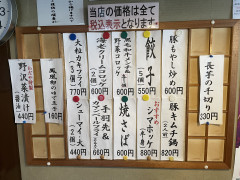 当店の価格は全て
税込表示となります。
長芋の千切り
330円
豚もやし炒め
600円
豚キムチ鍋
820円
餃子
550円
おすすめ
シマホッケ
880円
野菜コロッケ
600円
焼きそば
600円
海老クリームコロッケ
(2個)
600円
手羽先
660円
大粒カキフライ
770円
シューマイ・大
(2個)
440円
160円
野沢菜漬け
440円